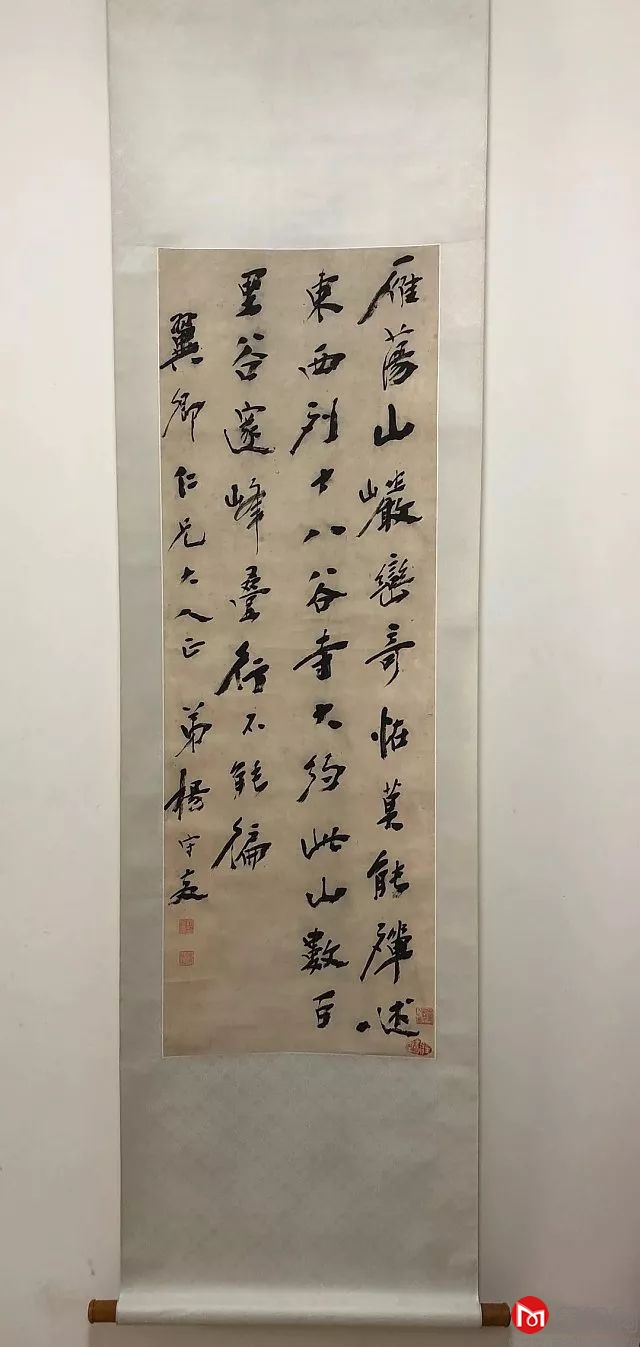 雁蕩山巖巒奇怪莫能殫述
東西列十八谷寺大約此山數百
里谷邃峰疊不能徧
翼卿仁兄大人正 弟楊守敬